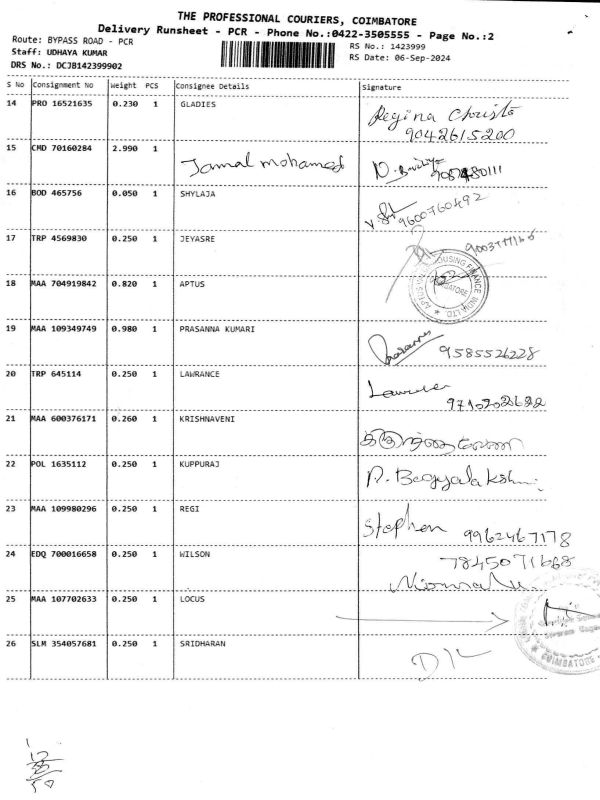 THE PROFESSIONAL COURIERS, COIMBATORE
Delivery Runsheet - PCR - Phone No.:0422-3505555 - Page No.:2
Route: BYPASS ROAD - PCR
RS No.: 1423999
Staff: UDHAYA KUMAR
RS Date: 06-Sep-2024
DRS No.: DCJB142399902
S No Consignment No Weight PCS Consignee Details Signature
14 PRO 16521635 0.230 1 GLADIES Regina Christ
9042615200
15 CMD 70160284 2.990 1
Jamal mohamed
16 BOD 465756 0.050 1 SHYLAJA
9600760492
17 TRP 4569830 0.250 1 JEYASRE
18 MAA 704919842 0.820 1 APTUS
19 MAA 109349749 0.980 1 PRASANNA KUMARI
9585526228
20 TRP 645114 0.250 1 LAWRANCE
21 MAA 600376171 0.260 1 KRISHNAVENI
22 POL 1635112 0.250 1 KUPPURAJ
23 MAA 109980296 0.250 1 REGI
Stephen 9962467178
24 EDQ 700016658 0.250 1 WILSON 7845071668
25 MAA 107702633 0.250 1 LOCUS
COIMBATORE
26 SLM 354057681 0.250 1 SRIDHARAN